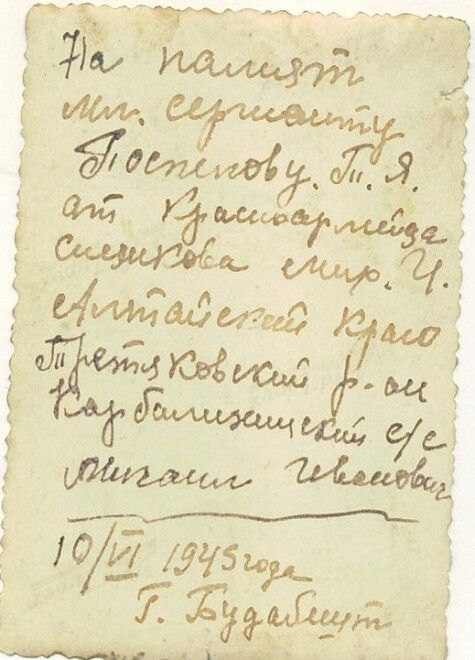 На памят
мл. сержанту
Поспелову. Т. Я.
от Красноармейца
Снежкова Мих. И.
Алтайский Краю
Третьяковский р-он
Карболихинский с/с
Михаил Иванович
10/VI 1945 года
Г. Будабешт